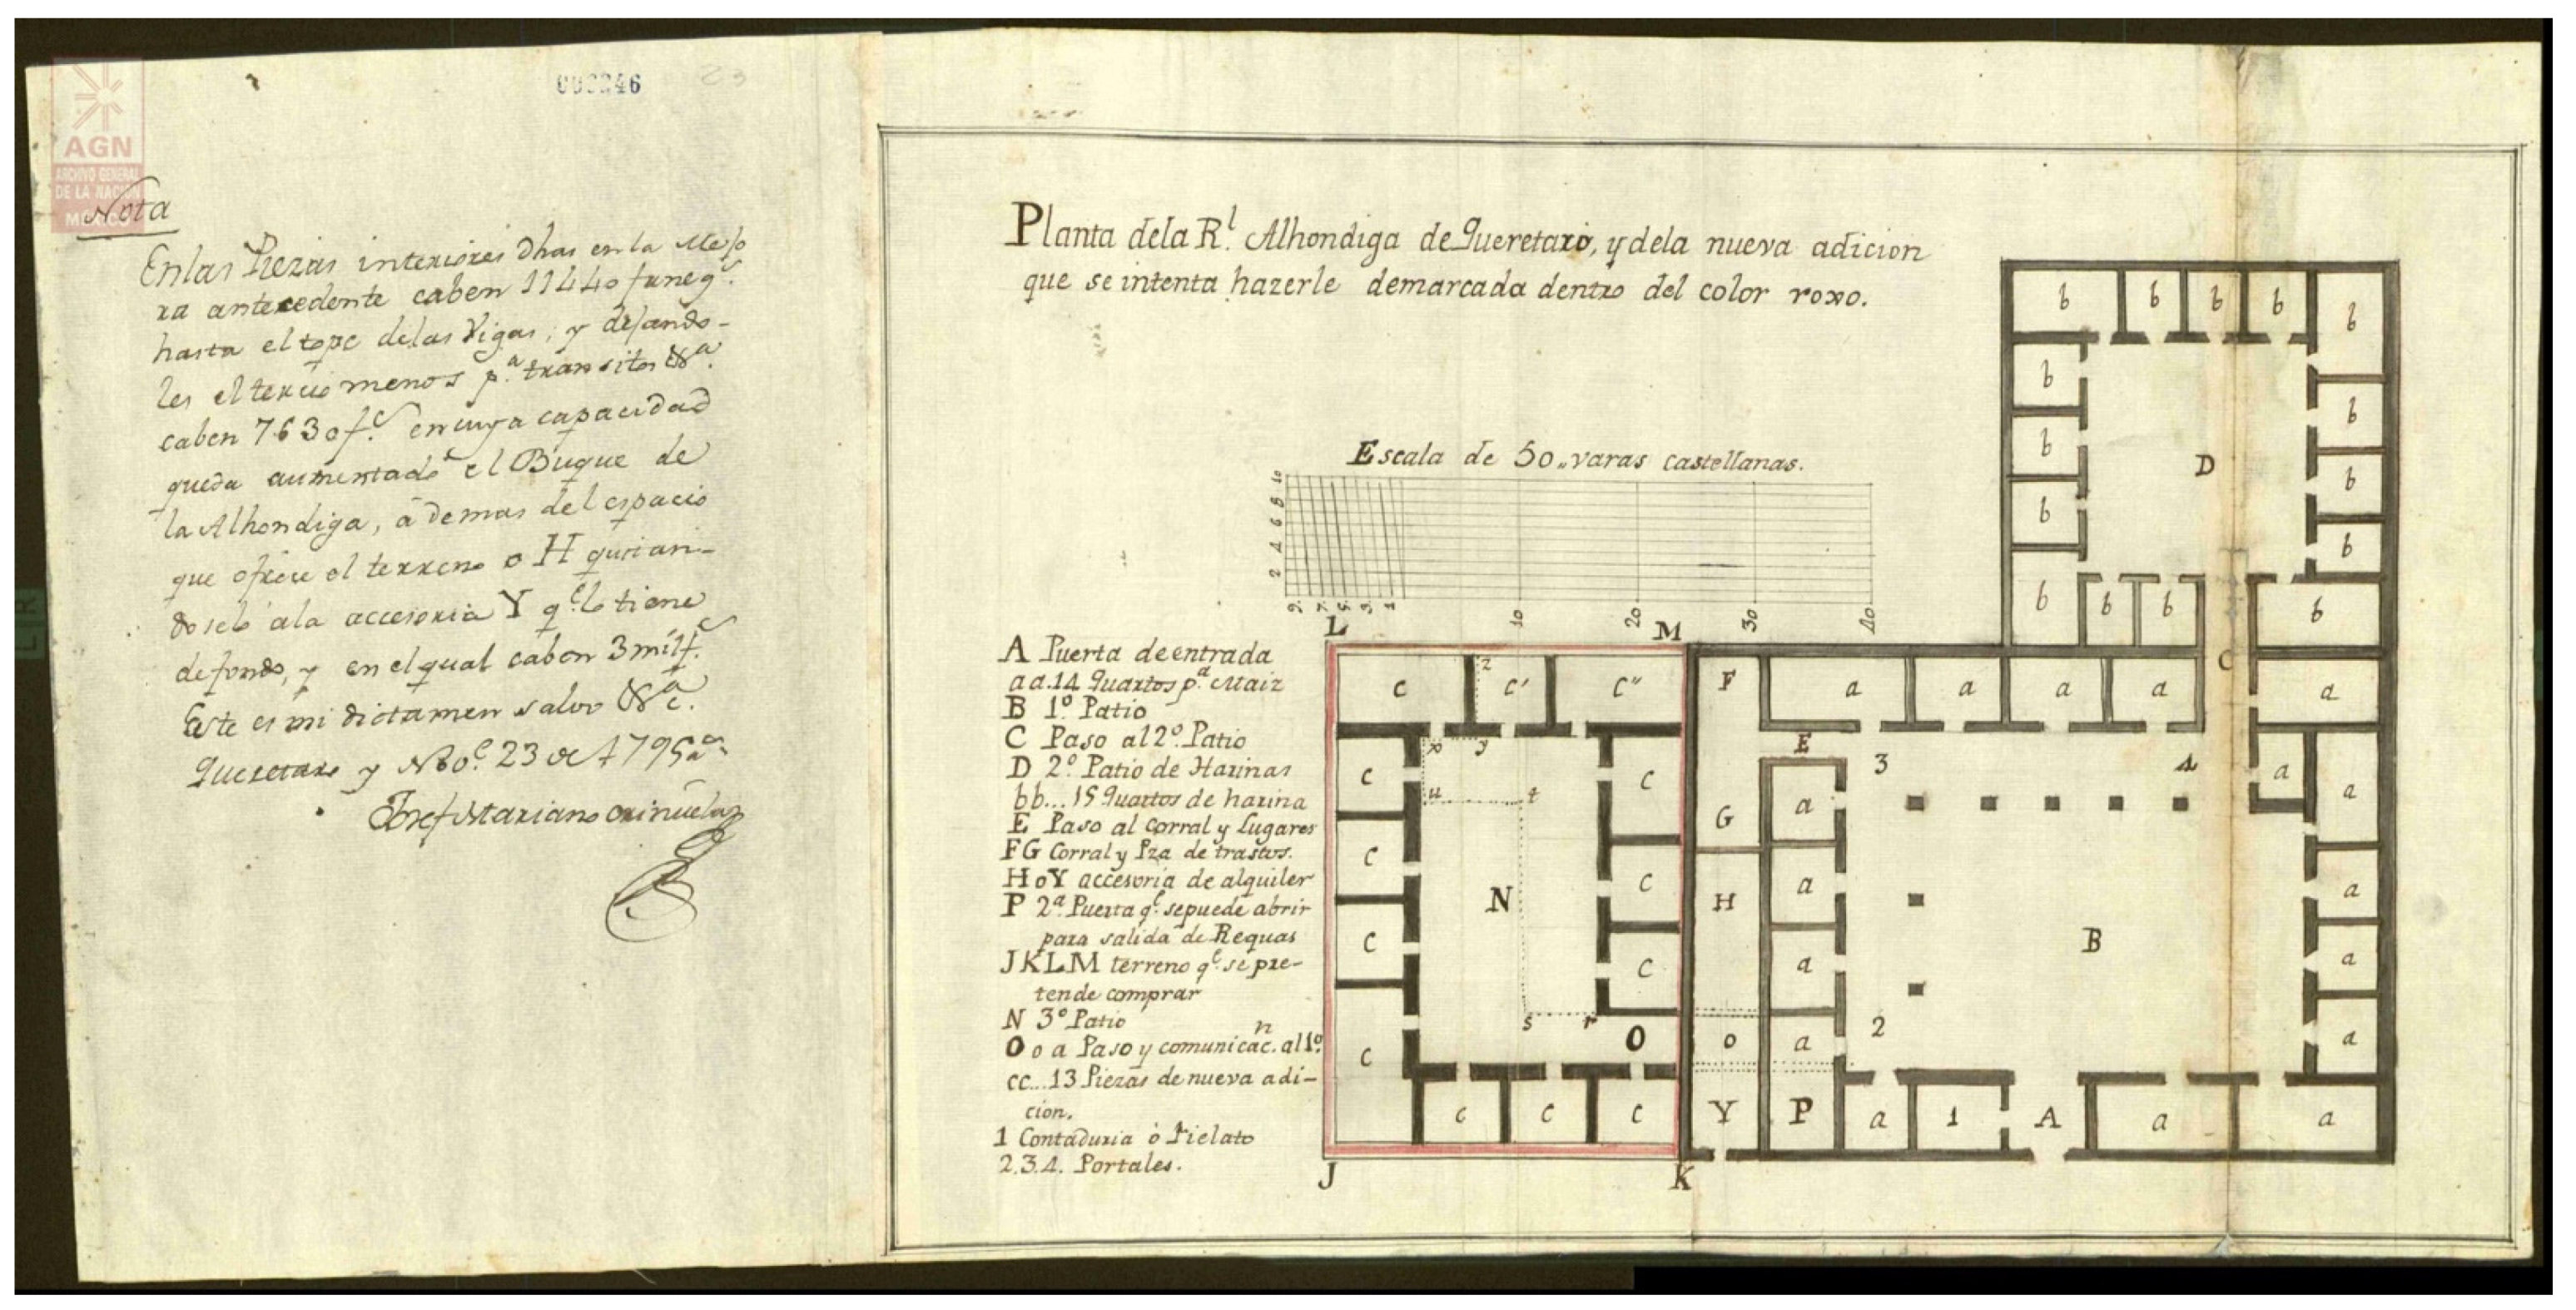 000246
23
AGN
ARCHIVO GENERAL
DE LA NACIÓN
MÉXICO
Nota
En las Piezas interiores dhas en la Mejo
ra antecedente caben 11440 faneg.s
hasta el tope de las Vigas; y dejando-
les el tercio menos p.a transitos &a.
caben 7630 f.s en cuya capacidad
queda aumentado el Buque de
la Alhondiga, ademas del espacio
que ofrece el terreno o H quitan-
doselo ala accesoria Y q.e lo tiene
de fondo, y en el qual caben 3 mil f.s
Este es mi dictamen salvo &a.
Queretaro y Nbo.e 23 de 1795 a.s
Josef Mariano Oriñuela
Planta dela R.l Alhondiga de Queretaro, y dela nueva adicion
que se intenta hazerle demarcada dentro del color roxo.
Escala de 50,, varas castellanas.
10
8
6
4
2
9. 7. 5. 3. 1 10 20 30 40
A Puerta de entrada
aa.14 Quartos p.a Maiz
B 1.o Patio
C Paso al 2.o Patio
D 2.o Patio de Harinas
bb...15 Quartos de harina
E Paso al corral y Lugares
FG Corral y Pza de trastos.
HoY accesoria de alquiler
P 2.a Puerta q.e se puede abrir
para salida de Requas
JKLM terreno q.e se pre-
tende comprar
N 3.o Patio
O o a Paso y comunicac.n al 1.o
cc...13 Piezas de nueva adi-
cion.
1 Contaduria ò Fielato
2.3.4. Portales.
b b b b b
b b
b D b
b b
b b b b
L M
C
c z c' c" F a a a a a
x y E 3 4 a
c c a a
u t G
c N c H a B a
c c a a
s r 2
c O o a a
c c c Y P a 1 A a a
J K